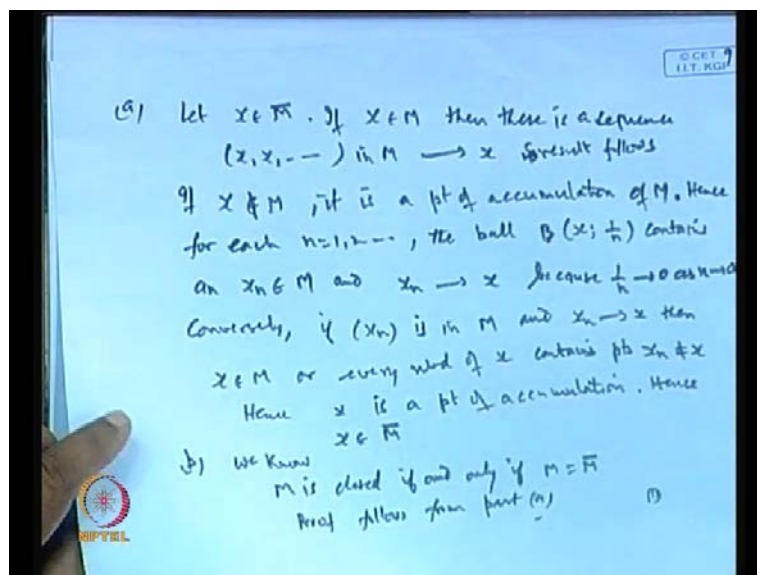 © CET
I.I.T. KGP
9
(a) Let x ∈ M̄ . If x ∈ M then there is a sequence
(x, x, -- ) in M → x so result follows
If x ∉ M , it is a pt of accumulation of M. Hence
for each n=1,2--- , the ball B (x; 1/n) contains
an xn ∈ M and xn → x because 1/n → 0 as n→∞
Conversely, if (xn) is in M and xn → x then
x ∈ M or every nbd of x contains pts xn ≠ x
Hence x is a pt of accumulation. Hence
x ∈ M̄
b) We Know
M is closed if and only if M = M̄
Proof follows from part (a)
NPTEL